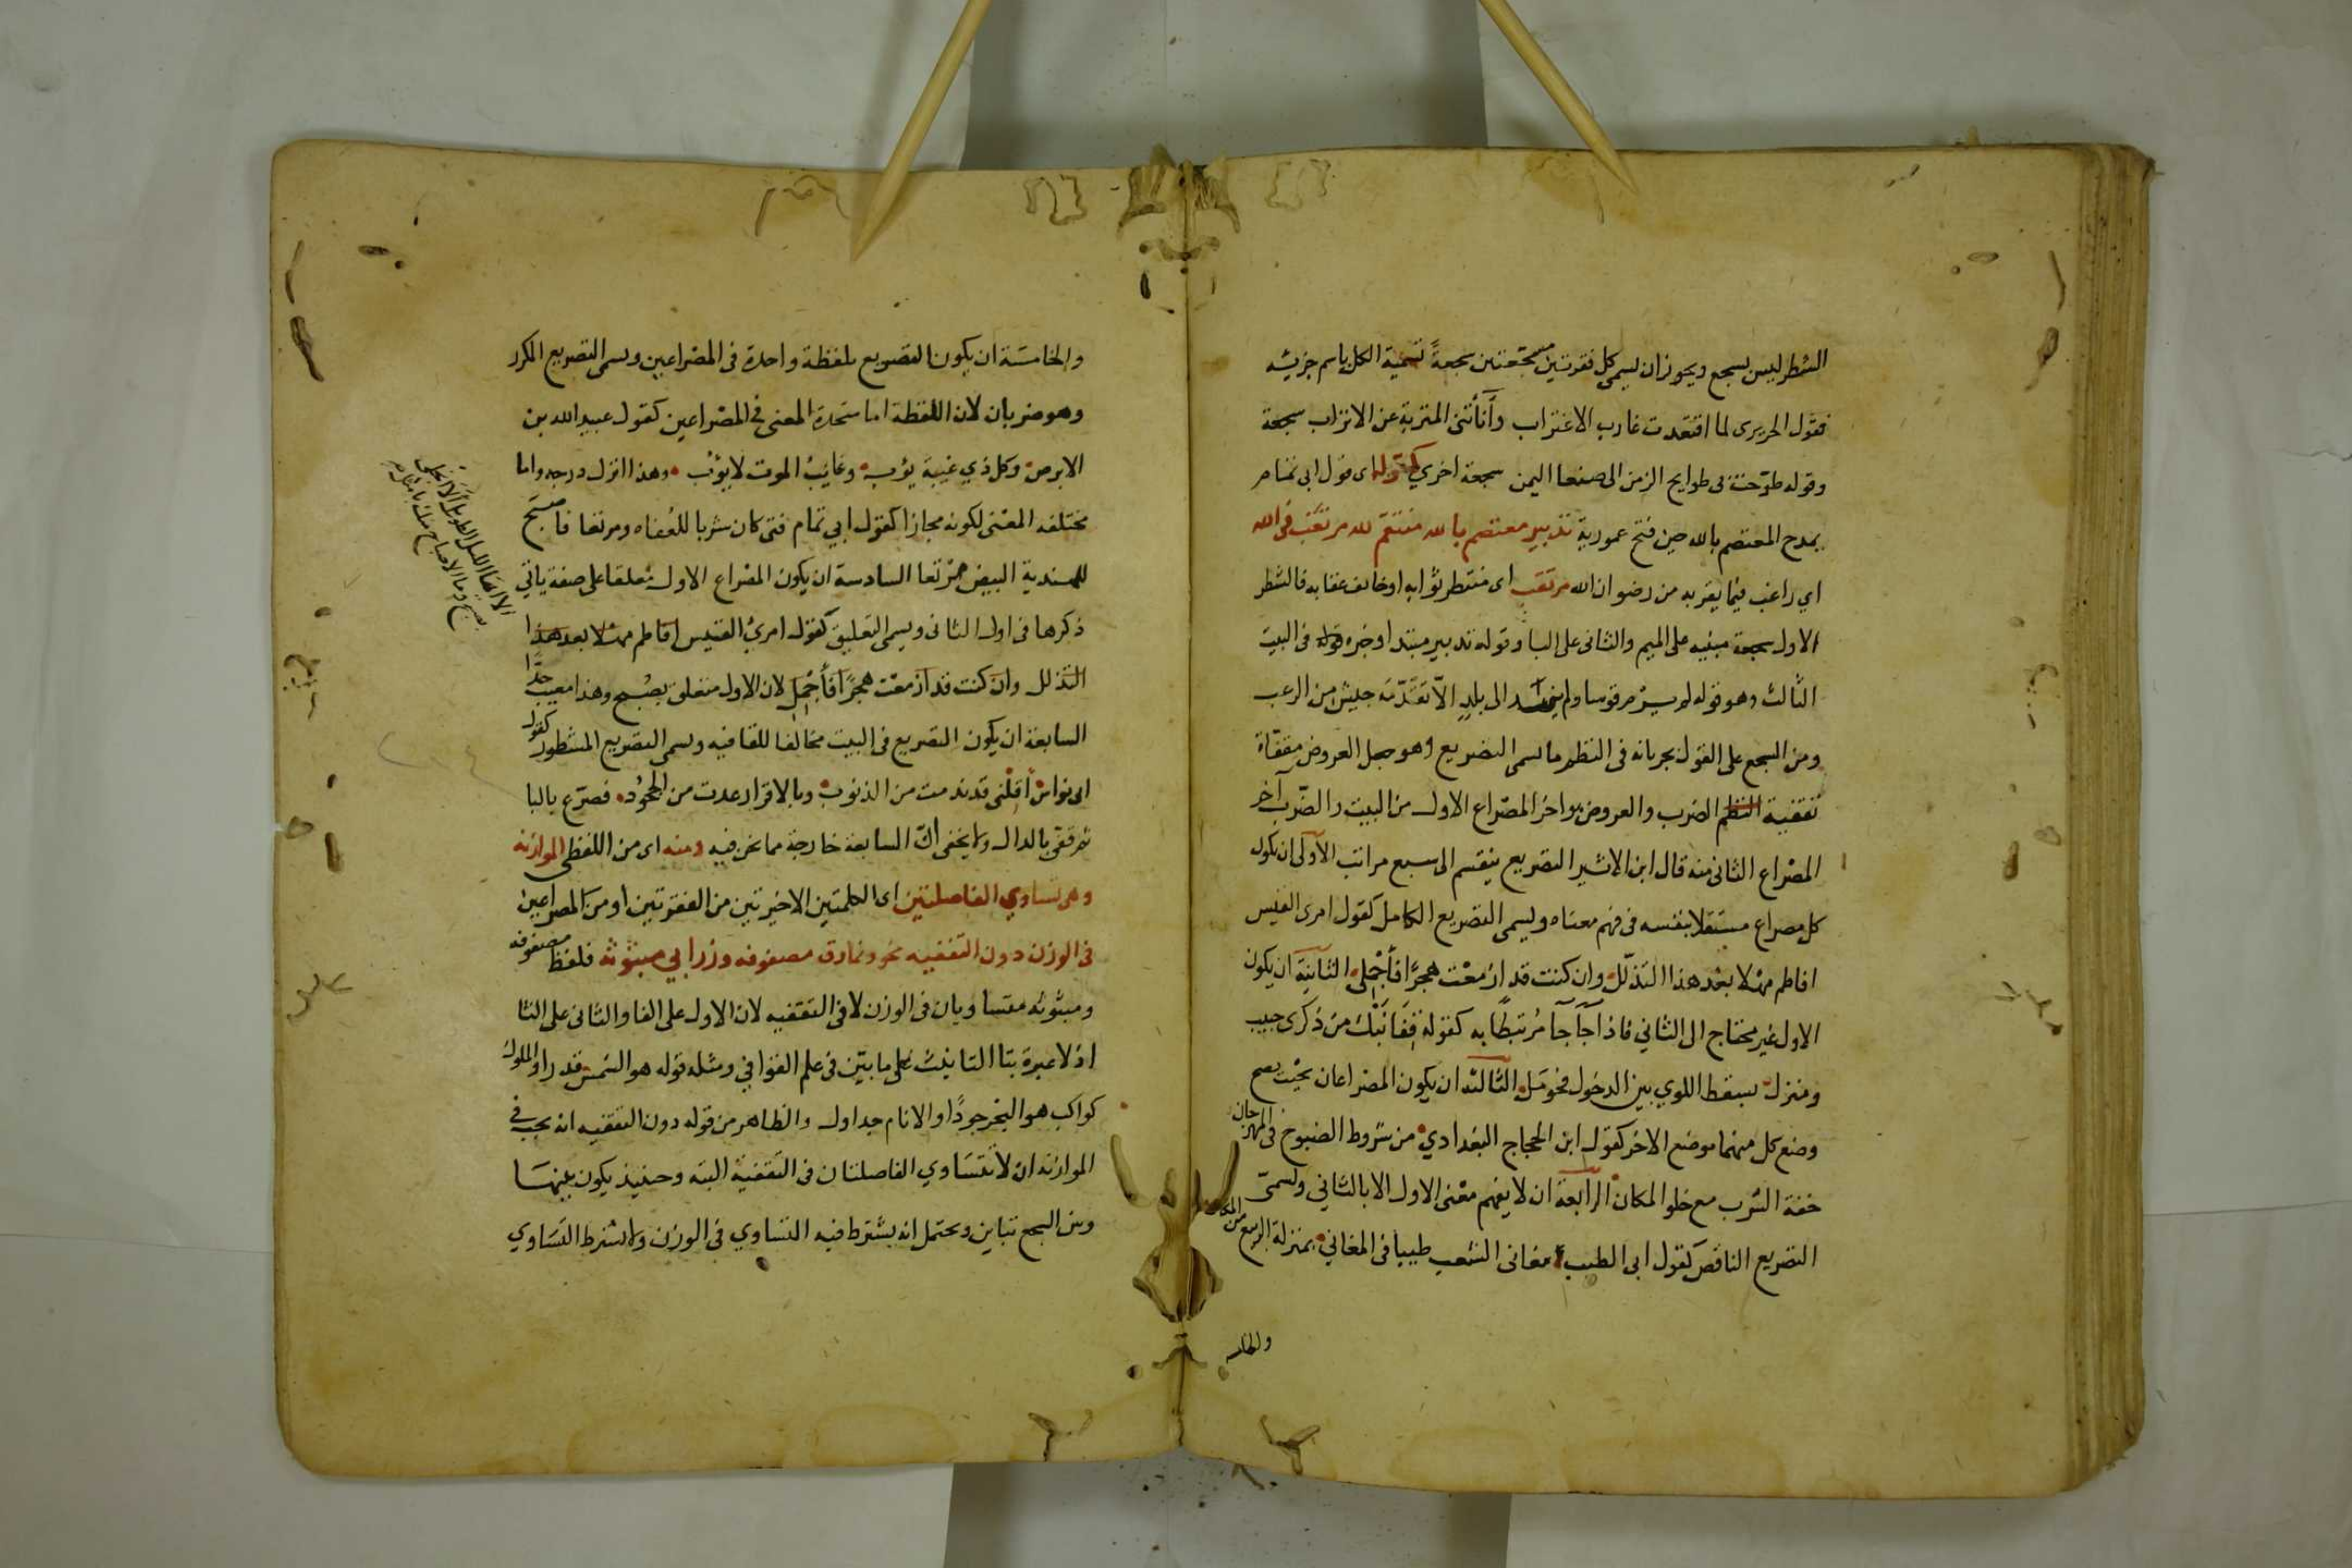 الشطر ليس بسجع ويجوز ان يسمى كل فقرتين مسجعتين سجعةً تسمية الكل باسم جزئيه
فقول الحريرى لما اقتعدت غارب الاغتراب وأنأتنى المتربة عن الاتراب سجعة
وقوله طوّحت بى طوايح الزمن الى صنعا اليمن سجعة اخري كقوله اى قول ابى تمام
يمدح المعتصم بالله حين فتح عمورية تدبير معتصم بالله منتقم لله مرتغب فى الله
اي راغب فيما يقربه من رضوان الله مرتقب اى منتظر ثوابه او خائف عقابه فالشطر
الاول سجعة مبنيه على الميم والثانى على البا وقوله تدبير مبتدا وخبره قوله فى البيت
الثالث وهو قوله لم يسر قوما ولم ينهد الى بلدٍ الّا تقدّمه جيش من الرعب
ومن السجع على القول بجريانه فى النظم ما يسمى التصريع وهو جعل العروض مقفّاة
تقفية النظم الضرب والعروض هو اخر المصراع الاول من البيت والضرب آخر
المصراع الثانى منه قال ابن الاثير التصريع ينقسم الى سبع مراتب الاولى ان يكون
كل مصراع مستقلا بنفسه فى فهم معناه ويسمى التصريع الكامل كقول امرى القيس
افاطم مهلا بعد هذا التذلّل وان كنت قد ازمعت هجرًا فأجملى الثانية ان يكون
الاول غير محتاج الى الثاني فاذا جآ جا مُرتبطًا به كقوله قفا نبك من ذكرى حبيب
ومنزل بسقط اللوي بين الدخول فحومل الثالثة ان يكون المصراعان بحيث يصح
وضع كل منهما موضع الاخر كقول ابن الحجاج البغدادي من شروط الصبوح فى المهرجان
خفة الشرب مع خلو المكان الرابعة ان لا يفهم معنى الاول الا بالثاني ويسمى
التصريع الناقص كقول ابى الطيب مغانى الشعب طيبا فى المغاني بمنزلة الربيع من
والخامسة
والخامسة ان يكون التصريع بلفظة واحدة فى المصراعين ويسمى التصريع المكرر
وهو ضربان لان اللفظة اما متحدة المعنى فى المصراعين كقول عبيد الله بن
الابرص وكل ذي غيبة يؤب وغايب الموت لا يؤب وهذا انزل درجه واما
مختلفه المعنى لكونه مجازا كقول ابي تمام فتى كان شربا للعُفاه ومرتعا فاصبح
للهندية البيض مرتعا السادسة ان يكون المصراع الاول معلقا على صفة ياتي
ذكرها فى اول الثانى ويسمى التعليق كقول امرئ القيس افاطم مهلا بعد هذا
التذلل وان كنت قد ازمعت هجرًا فأجمل لان الاول متعلق بصبح وهذا معيب جدًّا
السابعة ان يكون التصريع فى البيت مخالفا للقافيه ويسمى التصريع المشطور كقول
ابى نواس أقلنى قد ندمت من الذنوب وبالاقرار عدت من الجحُود فصرّع بالبا
ثم قفى بالدال ولا يخفى انّ السابعة خارجة مما نحن فيه ومنه اى من اللفظى الموازنه
وهى تساوي الفاصلتين اى الكلمتين الاخيرتين من الفقرتين او من المصراعين
فى الوزن دون التقفيه نحو ونمارق مصفوفه وزرابي مبثوثه فلفظ مصفوفه
ومبثوثه متساويان فى الوزن لا فى التقفيه لان الاول على الفا والثانى على الثا
اذ لا عبرة بتا التانيث على ما بيّن فى علم القوافي ومثله قوله هو الشمس قدرا والملوك
كواكب هو البحر جودًا والانام جداول والظاهر من قوله دون التقفيه انه يجب فى
الموازنه ان لا تتساوي الفاصلتان فى التقفية البته وحينيذ يكون بينهما
وبين السجع تباين ويحتمل انه يشترط فيه التساوي فى الوزن ولا يشترط التساوي
الا ايها الليل الطويل ألا انجلى
بصبح وما الاصباح منك بامثل